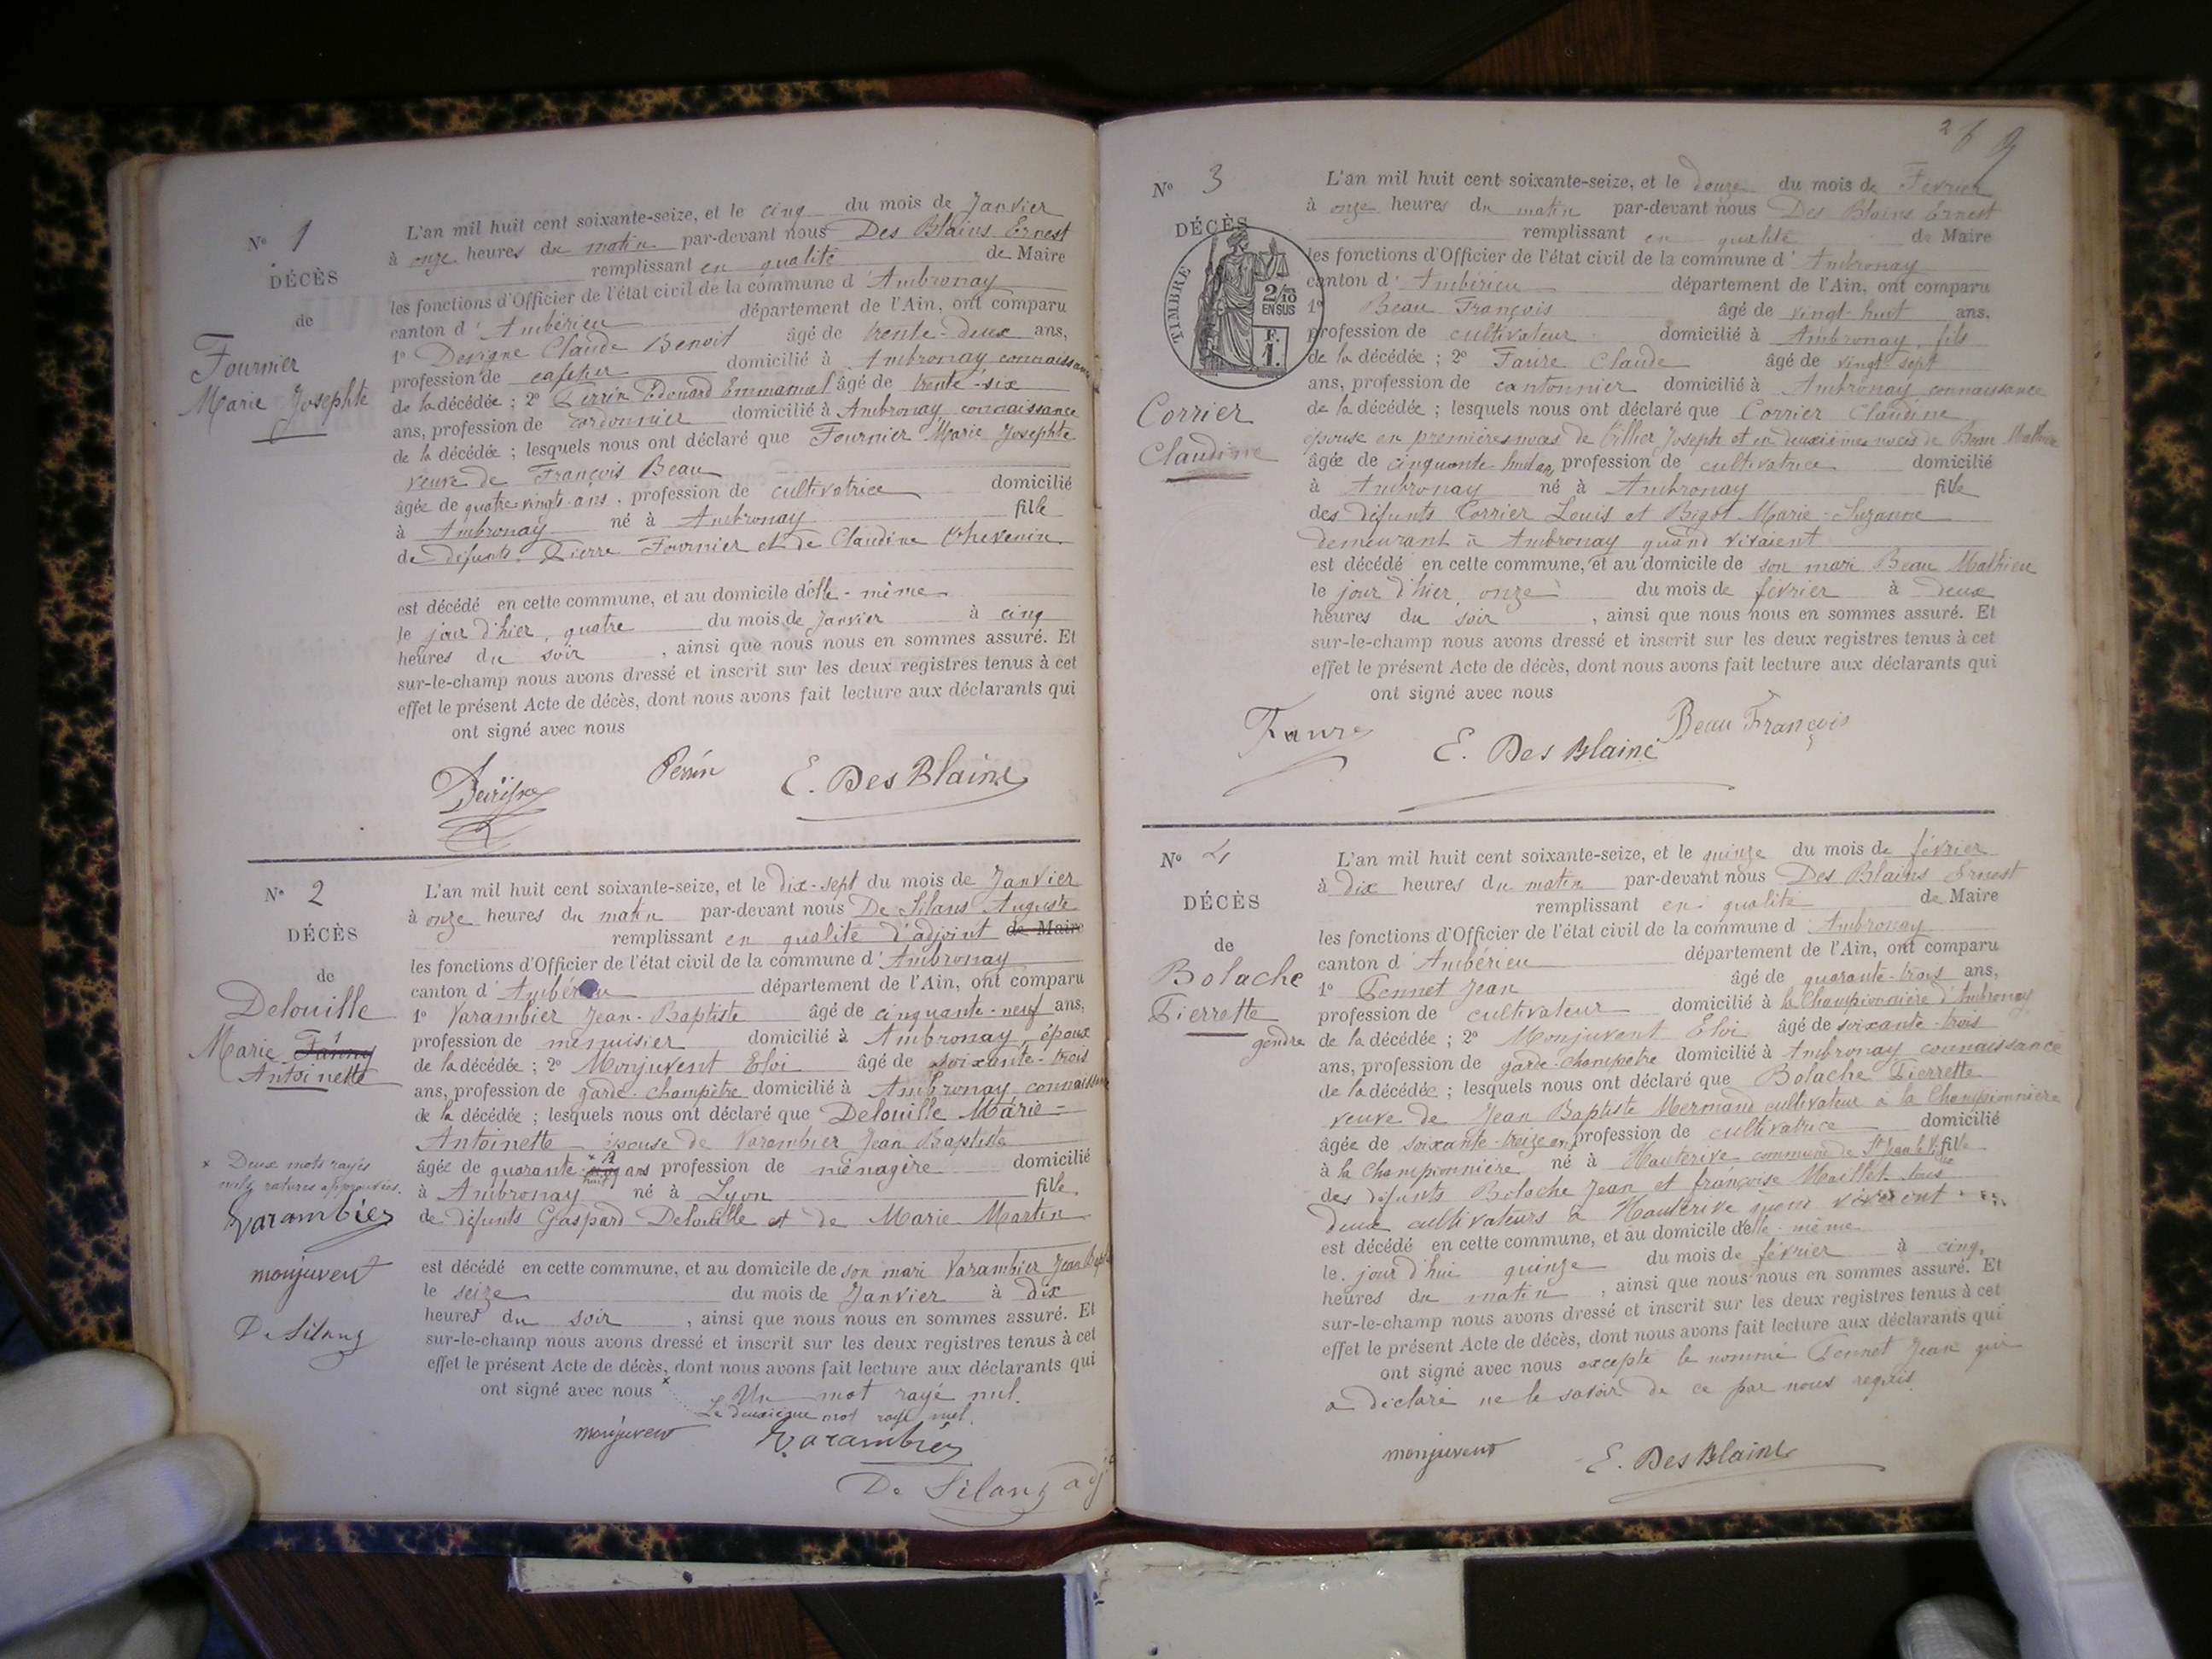 N° 1
DÉCÈS
de
Fournier
Marie Josephte
L'an mil huit cent soixante-seize, et le cinq du mois de Janvier
à onze heures du matin par-devant nous Des Blains Ernest
remplissant en qualité de Maire
les fonctions d'Officier de l'état civil de la commune d'Ambronay
canton d'Ambérieu département de l'Ain, ont comparu
1° Claude Benoit âgé de trente-deux ans,
profession de cafetier domicilié à Ambronay connaissance
de la décédée ; 2° Perrin Edouard Emmanuel âgé de trente-six
ans, profession de cordonnier domicilié à Ambronay connaissance
de la décédée ; lesquels nous ont déclaré que Fournier Marie Josephte
veuve de François Beau
âgée de quatre vingts ans, profession de cultivatrice domicilié
à Ambronay né à Ambronay fille
de défunts Pierre Fournier et de Claudine Thevenin
est décédé en cette commune, et au domicile d'elle-même
le jour d'hier, quatre du mois de Janvier à cinq
heures du soir, ainsi que nous nous en sommes assuré. Et
sur-le-champ nous avons dressé et inscrit sur les deux registres tenus à cet
effet le présent Acte de décès, dont nous avons fait lecture aux déclarants qui
ont signé avec nous
Perrin E. Des Blains
N° 2
DÉCÈS
de
Delouille
Marie Fanny
Antoinette
L'an mil huit cent soixante-seize, et le dix-sept du mois de Janvier
à onze heures du matin par-devant nous De Silans Auguste
remplissant en qualité d'adjoint de Maire
les fonctions d'Officier de l'état civil de la commune d'Ambronay
canton d'Ambérieu département de l'Ain, ont comparu
1° Varambier Jean-Baptiste âgé de cinquante-neuf ans,
profession de menuisier domicilié à Ambronay, époux
de la décédée ; 2° Monjuvent Eloi âgé de soixante-trois
ans, profession de garde-champêtre domicilié à Ambronay connaissance
de la décédée ; lesquels nous ont déclaré que Delouille Marie-
Antoinette épouse de Varambier Jean Baptiste
âgée de quarante huit ans profession de ménagère domicilié
à Ambronay né à Lyon fille
de défunts Gaspard Delouille et de Marie Martin
est décédé en cette commune, et au domicile de son mari Varambier Jean Bapt
le seize du mois de Janvier à dix
heures du soir, ainsi que nous nous en sommes assuré. Et
sur-le-champ nous avons dressé et inscrit sur les deux registres tenus à cet
effet le présent Acte de décès, dont nous avons fait lecture aux déclarants qui
ont signé avec nous × Un mot rayé nul.
Le deuxième mot rayé nul.
monjuvent Varambier
De Silans adjt
× Deux mots rayés
nuls ratures approuvées.
Varambier
monjuvent
De Silans
2
N° 3
DÉCÈS
TIMBRE
2/10
EN SUS
F.
1.
Corrier
Claudine
L'an mil huit cent soixante-seize, et le douze du mois de Fevrier
à onze heures du matin par-devant nous Des Blains Ernest
remplissant en qualité de Maire
les fonctions d'Officier de l'état civil de la commune d'Ambronay
canton d'Ambérieu département de l'Ain, ont comparu
1° Beau François âgé de vingt-huit ans,
profession de cultivateur domicilié à Ambronay, fils
de la décédée ; 2° Faure Claude âgé de vingt sept
ans, profession de cantonnier domicilié à Ambronay connaissance
de la décédée ; lesquels nous ont déclaré que Corrier Claudine
épouse en premières noces de Joseph et en deuxièmes noces de Beau Mathieu
âgée de cinquante-huit ans, profession de cultivatrice domicilié
à Ambronay né à Ambronay fille
des défunts Corrier Louis et Bigot Marie-Suzanne
demeurant à Ambronay quand vivaient
est décédé en cette commune, et au domicile de son mari Beau Mathieu
le jour d'hier, onze du mois de février à deux
heures du soir, ainsi que nous nous en sommes assuré. Et
sur-le-champ nous avons dressé et inscrit sur les deux registres tenus à cet
effet le présent Acte de décès, dont nous avons fait lecture aux déclarants qui
ont signé avec nous
Faure E. Des Blains Beau François
N° 4
DÉCÈS
de
Bolache
Pierrette
L'an mil huit cent soixante-seize, et le quinze du mois de février
à dix heures du matin par-devant nous Des Blains Ernest
remplissant en qualité de Maire
les fonctions d'Officier de l'état civil de la commune d'Ambronay
canton d'Ambérieu département de l'Ain, ont comparu
1° Pennet Jean âgé de quarante-trois ans,
profession de cultivateur domicilié à la Championnière d'Ambronay
gendre de la décédée ; 2° Monjuvent Eloi âgé de soixante-trois
ans, profession de garde-champêtre domicilié à Ambronay connaissance
de la décédée ; lesquels nous ont déclaré que Bolache Pierrette
veuve de Jean Baptiste Mermand cultivateur à la Championnière
âgée de soixante-treize ans profession de cultivatrice domicilié
à la Championnière né à Hauterive commune de fille
des défunts Bolache Jean et françoise Maillet tous
deux cultivateurs à Hauterive quand vivaient
est décédé en cette commune, et au domicile d'elle-même
le jour d'hui quinze du mois de février à cinq
heures du matin, ainsi que nous nous en sommes assuré. Et
sur-le-champ nous avons dressé et inscrit sur les deux registres tenus à cet
effet le présent Acte de décès, dont nous avons fait lecture aux déclarants qui
ont signé avec nous excepté le nommé Pennet Jean qui
a déclaré ne le savoir de ce par nous requis.
monjuvent E. Des Blains